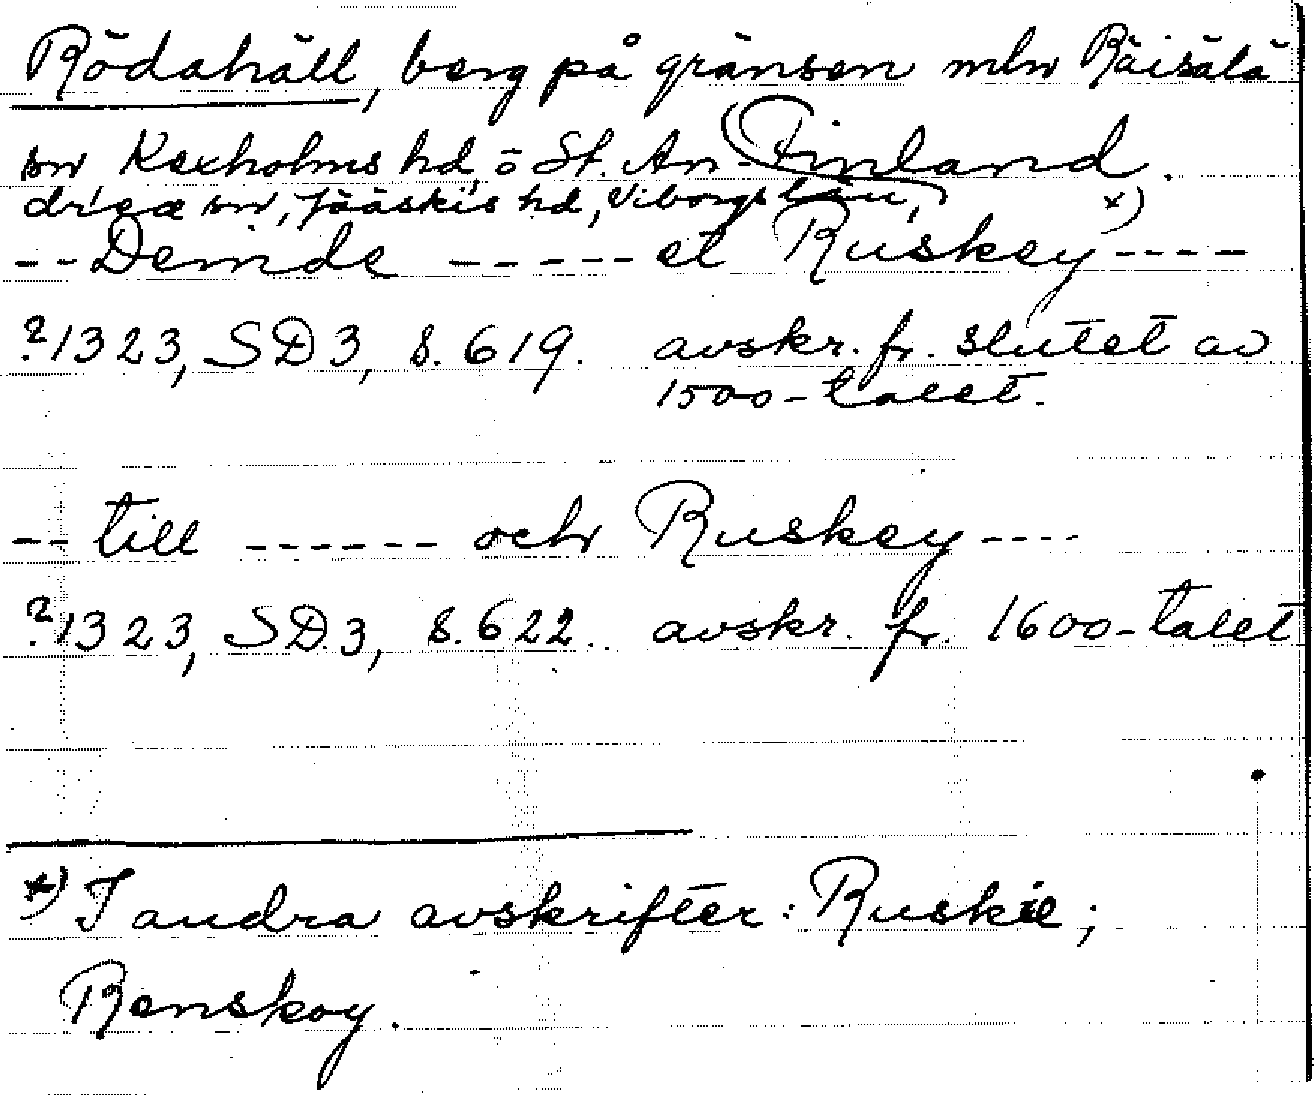 Rödahäll, berg på gränsen mln Räisälä
sn Kexholms hd, o St. An- Finland.
dreæ sn, Jääskis hd, Viborgs län, x)
-- Deinde ----- et Ruskey ----
?1323, SD3, s. 619. avskr. fr. slutet av
1500-talet.
-- till ------ och Ruskey ----
?1323, SD.3, s. 622. avskr. fr. 1600-talet
x) I andra avskrifter: Ruskie;
Renskoy.